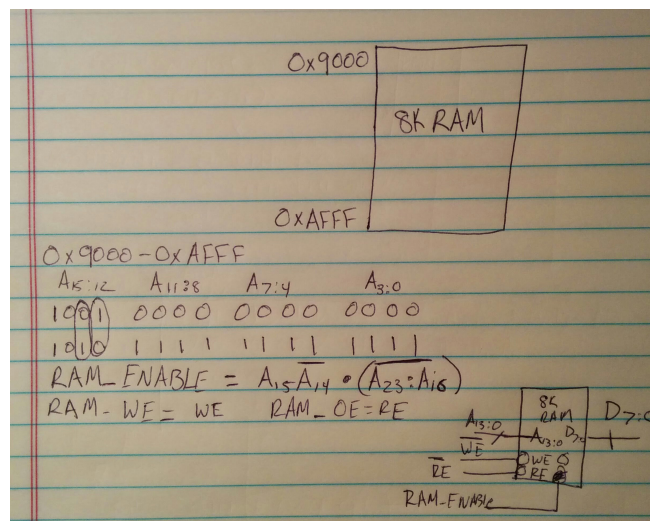 0x9000
8K RAM
0xAFFF
0x9000-0xAFFF
A15:12 A11:8 A7:4 A3:0
1001 0000 0000 0000
1010 1111 1111 1111
RAM_ENABLE = A15A̅1̅4̅ • (A̅2̅3̅:̅A̅1̅6̅)
RAM-WE = WE RAM_OE=RE
8K
RAM
D7:0
A13:0
A13:0
W̅E̅
WE
R̅E̅
RE
RAM-ENABLE